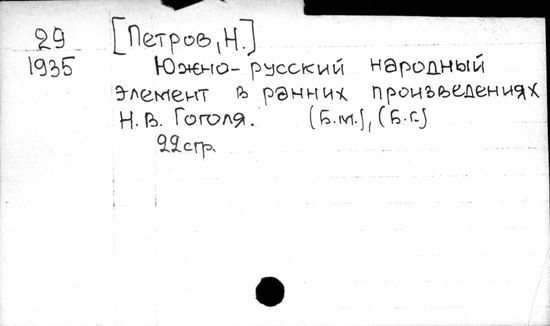 29 [Петров, Н.]
1935 Южно-русский народный
элемент в ранних произведениях
Н.В. Гоголя. (Б.м.), (Б.г.)
22 стр.